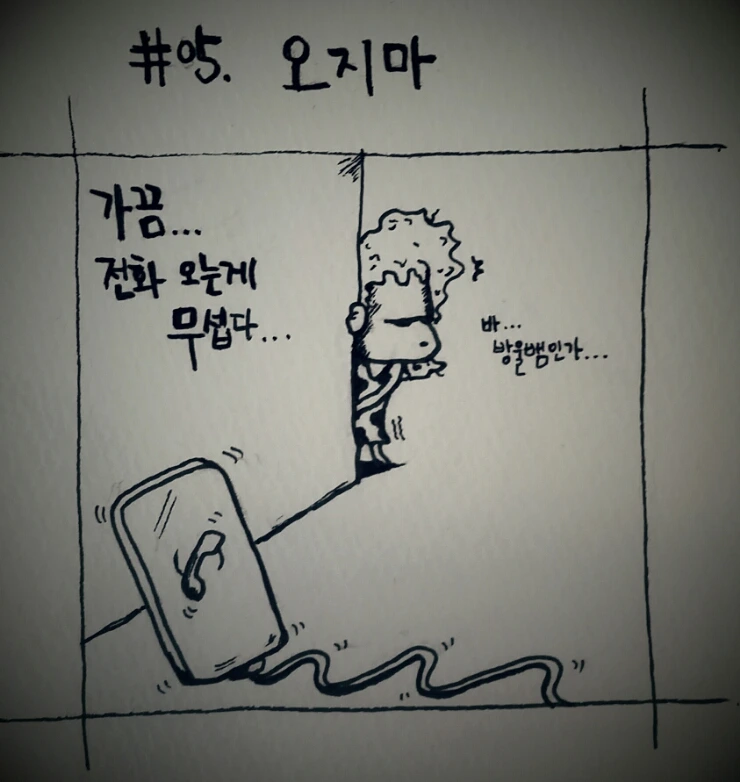 #05. 오지마
가끔...
전화 오는게
무섭다...
바...
방울뱀인가...